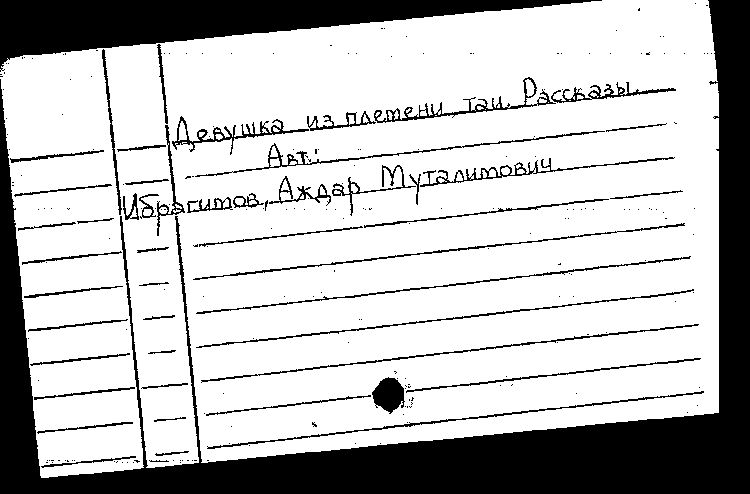 Девушка из племени таи. Рассказы.
Авт.:
Ибрагимов, Аждар Муталимович.